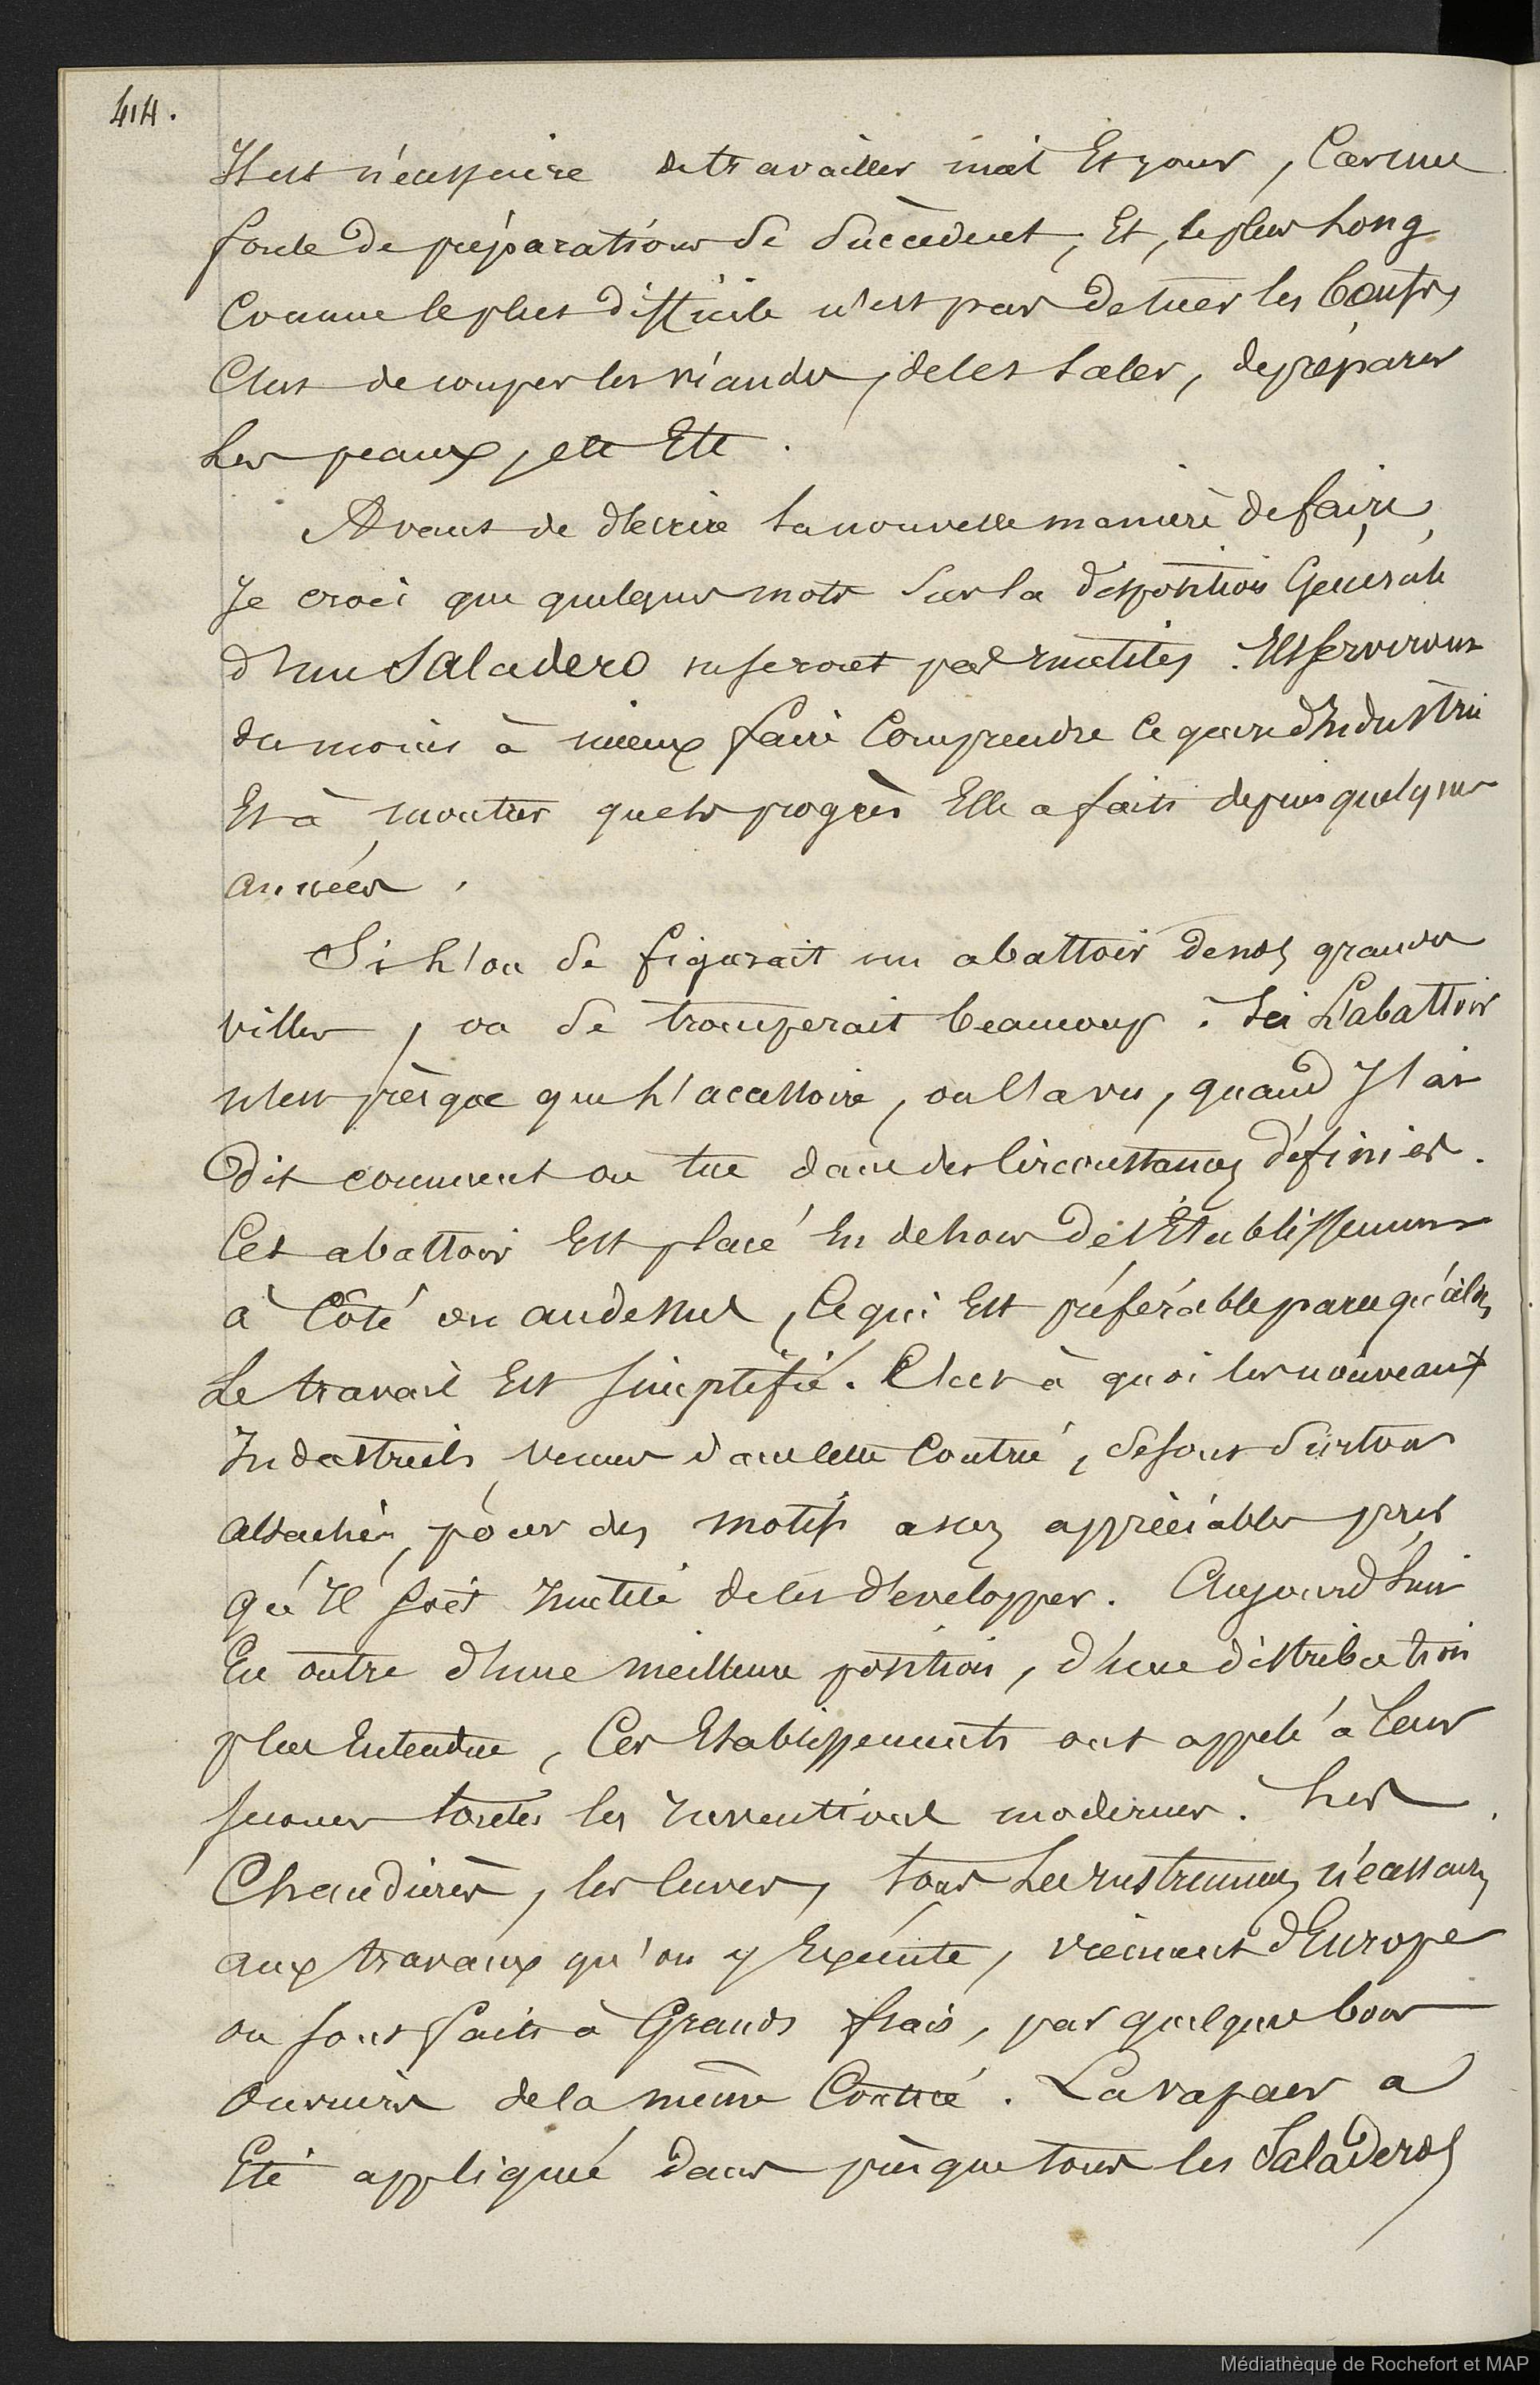 414.
Il est nécessaire de travailler nuit Et jour, Car une
foule de préparations se succèdent, Et, le plus Long
Comme le plus difficile n'est pas de tuer les bœufs,
C'est de couper les viandes, de les saler, de préparer
Les peaux, etc Etc.
Avant de décrire la nouvelle manière de faire,
Je crois que quelques mots sur la disposition Générale
d'un Saladero ne seront pas inutiles. Ils serviront
du moins à mieux faire Comprendre ce genre d'Industrie
Et à montrer quels progrès Elle a faits depuis quelques
années.
Si L'on se figurait un abattoir de nos grandes
villes, on se tromperait beaucoup. Ici L'abattoir
n'est prèsque que L'acessoire, on l'a vu, quand J'ai
dit comment on tue dans des Circonstances définies.
Cet abattoir Est placé En dehors de l'Etablissement
à Côté ou au dessus, Ce qui Est préférable parcequ'alors
Le travail Est simplifié. C'est à quoi les nouveaux
Industriels venus dans cette Contrée, se sont surtout
attachés, pour des motifs assez appréciables pour
qu'Il soit Inutile de les développer. Aujourd'hui
En outre d'une meilleure position, d'une distribution
plus Entendue, Ces Etablissements ont appelé à Leur
secours toutes les Inventions modernes. Les
Chaudières, les cuves, tous Les instruments nécessaires
aux travaux qu'on y Exécute, viennent d'Europe
ou sont faits à Grands frais, par quelques bons
ouvriers de la même Contrée. La vapeur a
Eté appliquée dans prèsque tous les Saladeros
Médiathèque de Rochefort et MAP